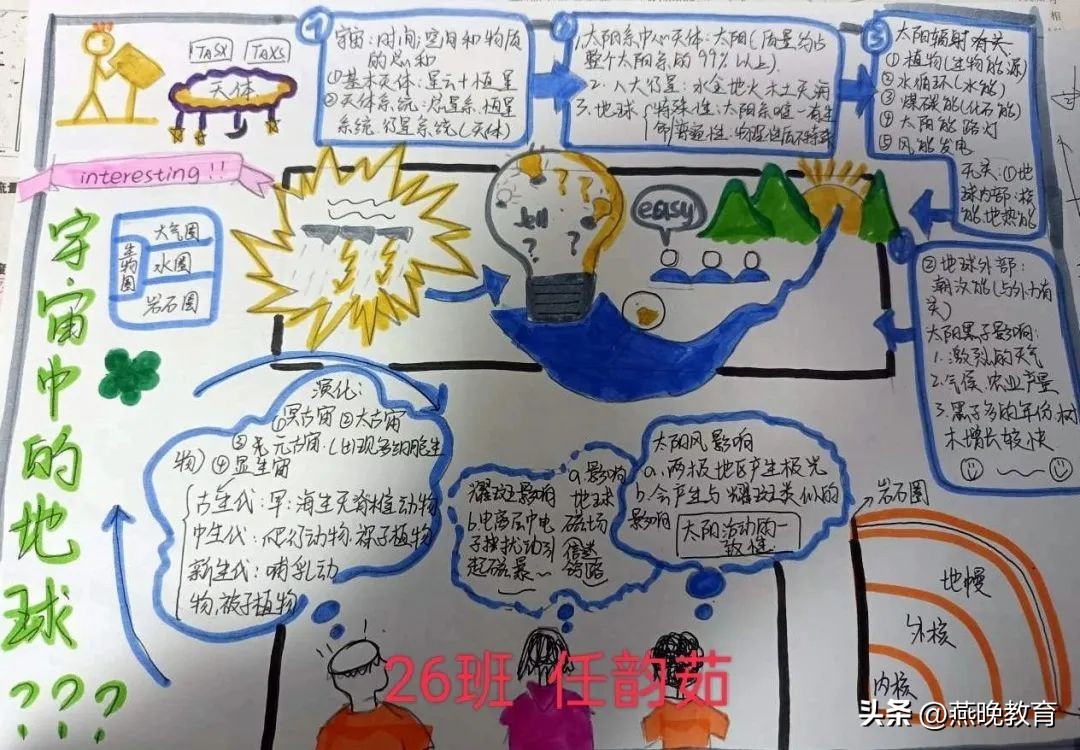 TaSX
TaXS
天体
1
宇宙：时间；空间和物质
的总和
①基本天体：星云+恒星
②天体系统：总星系、恒星
系统、行星系统（天体）
1.太阳系中心天体：太阳（质量约占
整个太阳系的99%以上）
2.八大行星：水金地火木土天海
3.地球 特殊性：太阳系唯一有生
命
普遍性：物理性质不特殊
3
太阳辐射有关
①植物（生物能源）
②水循环（水能）
③煤碳能（化石能）
④太阳能路灯
⑤风能发电
无关：①地
球内部：核
能、地热能
②地球外部：
潮汐能（与外力有
关）
太阳黑子影响：
1.激烈的天气
2.气候、农业产量
3.黑子多的年份树
木增长较快
interesting!!
宇宙中的地球???
生物圈
大气圈
水圈
岩石圈
? ? ?
? ?
easy
演化：
①冥古宙②太古宙
③元古宙：（出现多细胞生
物）④显生宙
古生代：早：海生无脊椎动物
中生代：爬行动物、裸子植物
新生代：哺乳动
物、被子植物
耀斑影响
a.影响
地球
磁场
b.电离层中电
子扰动引
起磁暴
太阳风影响
a.两极地区产生极光
b.会产生与耀斑类似的
影响
太阳活动的一
致性
岩石圈
地幔
外核
内核
26班 任韵茹
头条 @燕晚教育